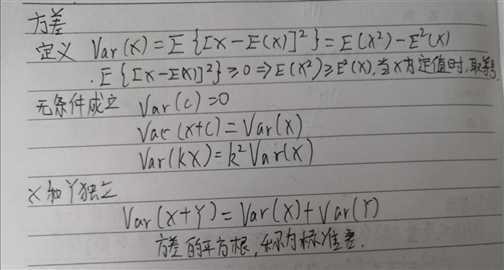 方差
定义 Var(X)=E{[X-E(X)]²}=E(X²)-E²(X)
.E{[X-E(X)]²}≥0⇒E(X²)≥E²(X),当X为定值时,取等号
无条件成立 Var(c)=0
Var(X+C)=Var(X)
Var(kX)=k²Var(X)
X和Y独立
Var(X+Y)=Var(X)+Var(Y)
方差的平方根,称为标准差.